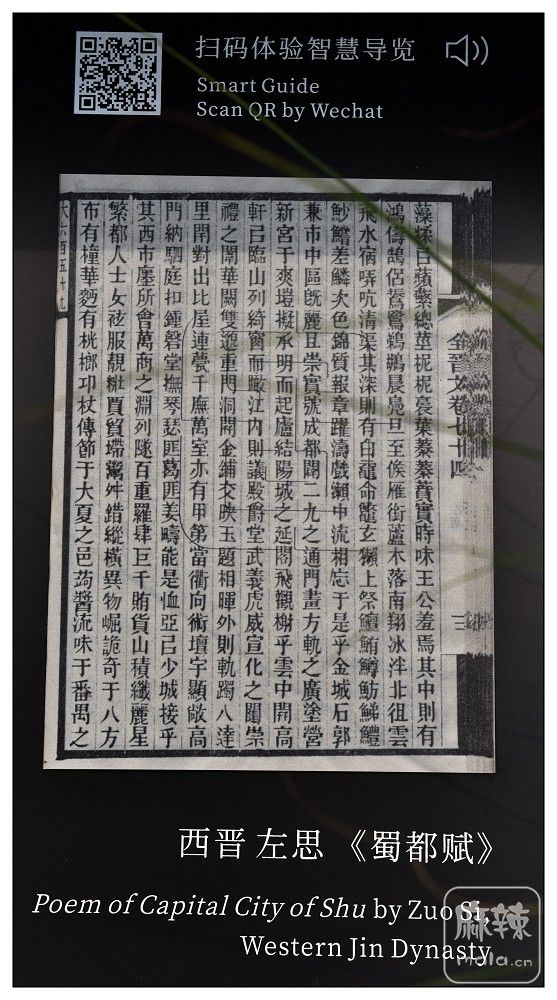 扫码体验智慧导览
Smart Guide
Scan QR by Wechat
全晉文卷七十四
三
藻揉㠯蘋蘩總莖柅柅裛葉蓁蓁蕡實時味王公羞焉其中則有
鴻儔鵠侶鷺鵜鶘晨鳧旦至候雁銜蘆木落南翔冰泮北徂雲
飛水宿哢吭清渠其深則有白黿命鼈玄獺上祭鱣鮪鱒魴鮷鱧
魦鱨差鱗次色錦質報章躍濤戲瀨中流相忘于是乎金城石郭
兼帀中區旣麗且崇實號成都闢二九之通門畫方軌之廣塗營
新宮于爽塏擬承明而起廬結陽城之延閣飛觀榭乎雲中開高
軒㠯臨山列綺窗而瞰江內則議殿爵堂武義虎威宣化之闥崇
禮之闈華闕雙邈重門洞開金鋪交映玉題相暉外則軌躅八達
里閈對出比屋連甍千廡萬室亦有甲第當衢向術壇宇顯敞高
門納駟庭扣鍾磬堂撫琴瑟匪葛匪姜疇能是恤亞㠯少城接乎
其西市廛所會萬商之淵列隧百重羅肆巨千賄貨山積纖麗星
繁都人士女袨服靚粧賈貿墆鬻舛錯縱橫異物崛詭奇于八方
布有橦華麪有桄榔邛杖傳節于大夏之邑蒟醬流味于番禺之
大六百五十九
西晋 左思 《蜀都赋》
Poem of Capital City of Shu by Zuo Si,
Western Jin Dynasty
麻辣
mala.cn